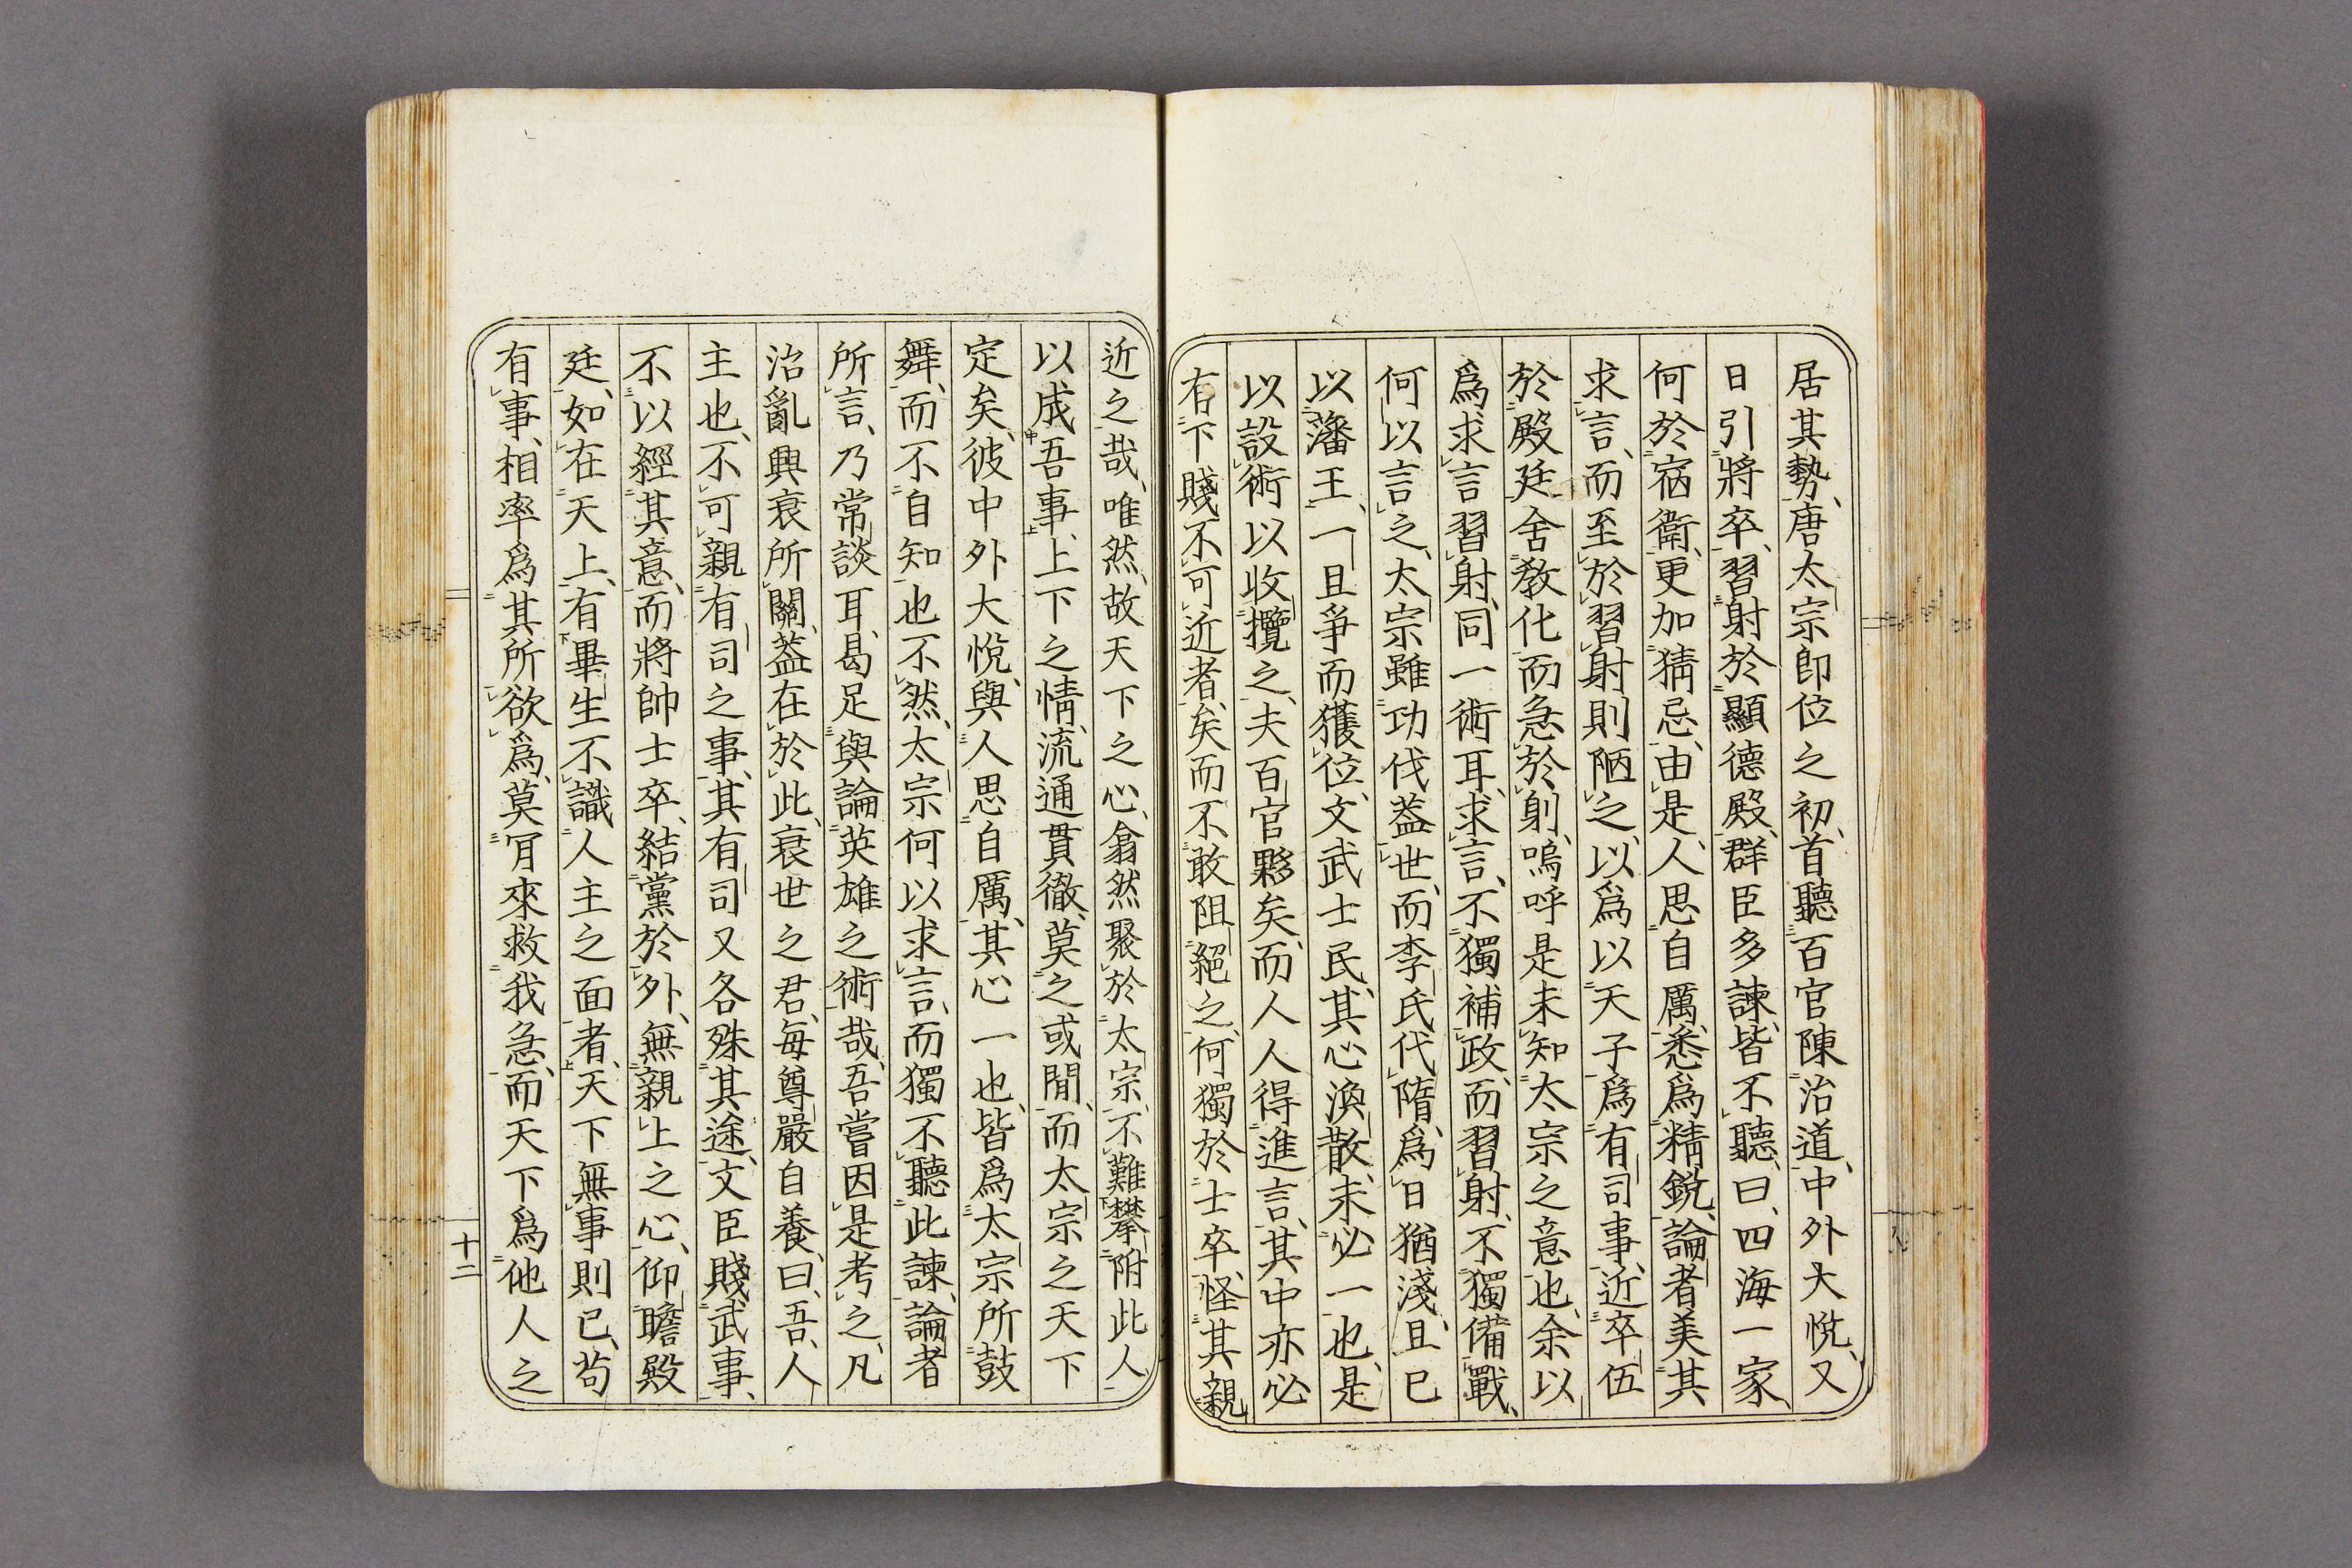 居其勢、唐太宗卽位之初、首聽百官陳治道、中外大悅、又
日引將卒、習射於顯德殿、群臣多諫、皆不聽、曰、四海一家、
何於宿衛、更加猜忌、由是人思自厲、悉爲精銳、論者美其
求言、而至於習射則陋之、以爲以天子爲有司事、近卒伍
於殿廷、舍敎化而急於射、嗚呼是未知太宗之意也、余以
爲求言習射、同一術耳、求言、不獨補政、而習射、不獨備戰、
何以言之、太宗雖功伐蓋世、而李氏代隋、爲日猶淺、且已
以藩王、一旦爭而獲位、文武士民、其心渙散、未必一也、是
以設術以收攬之、夫百官夥矣、而人人得進言、其中亦必
有下賤不可近者、矣而不敢阻絕之、何獨於士卒、怪其親
近之哉、唯然、故天下之心、翕然聚於太宗、不難攀附此人
以成吾事、上下之情、流通貫徹、莫之或閒、而太宗之天下
定矣、彼中外大悅、與人思自厲、其心一也、皆爲太宗所鼓
舞、而不自知也、不然、太宗何以求言、而獨不聽此諫、論者
所言、乃常談耳、曷足與論英雄之術哉、吾嘗因是考之、凡
治亂興衰所關、蓋在於此、衰世之君、每尊嚴自養、曰、吾、人
主也、不可親有司之事、其有司又各殊其途、文臣賤武事、
不以經其意、而將帥士卒、結黨於外、無親上之心、仰瞻殿
廷、如在天上、有畢生不識人主之面者、天下無事則已、苟
有事、相率爲其所欲爲、莫肎來救我急、而天下爲他人之
十二